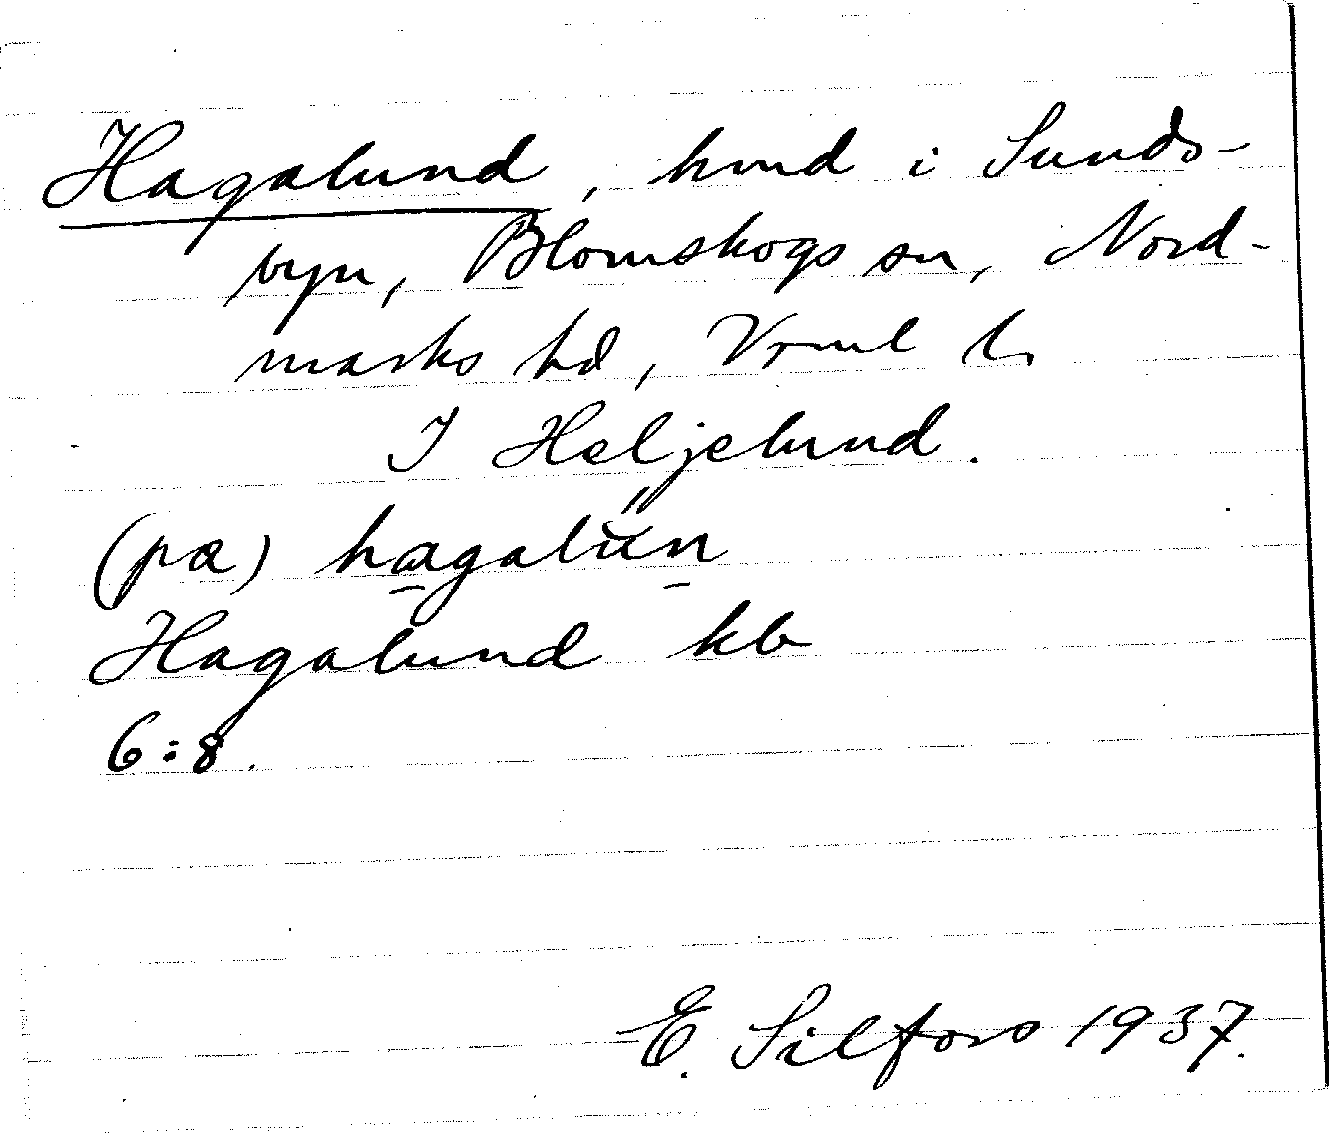 Hagalund, hmd i Sunds-
byn, Blomskogs sn, Nord-
marks hd, Vrml l.
I Heljelund.
(pɑ) hagalu̎n
Hagalund kb
6:8.
E. Silfors 1937.